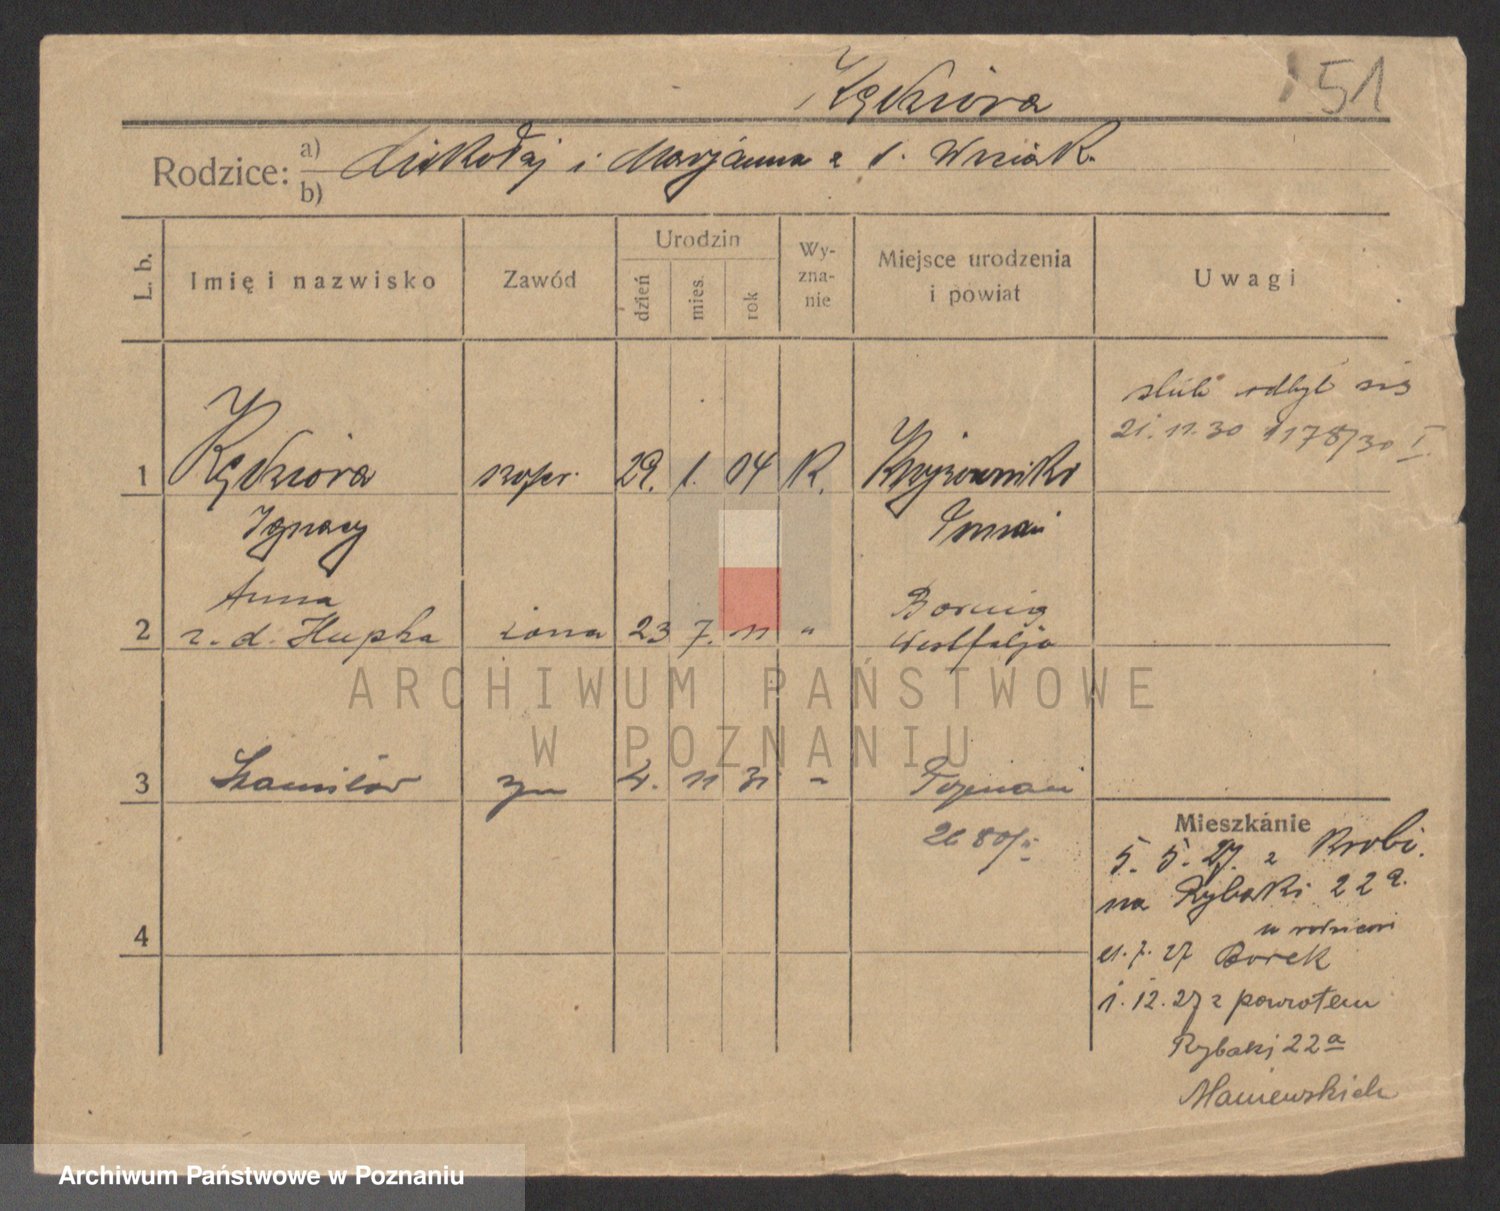 Kędziora
151
Rodzice: a) b) Mikołaj i Marjanna z d. Wziak.
L. b.
Imię i nazwisko
Zawód
Urodzin
dzień
mies.
rok
Wy-
zna-
nie
Miejsce urodzenia
i powiat
Uwagi
ślub odbył się
21.11.30 1178/30 I.
1 Kędziora szofer. 29. 1. 04 K. Krzyżowniki
Ignacy Poznań
Anna Bornig
2 z. d. Hupka żona 23 7. 11 " Westfalja
ARCHIWUM PAŃSTWOWE
W POZNANIU
3 Stanisław syn 4. 11 31 " Poznań
2680/II
4
Mieszkánie
5. 5. 27. z Krobi.
na Rybaki 22a.
u rodziców
21.7.27 Borek
1.12.27 z powrotem
Rybaki 22a
Maniewskich
Archiwum Państwowe w Poznaniu